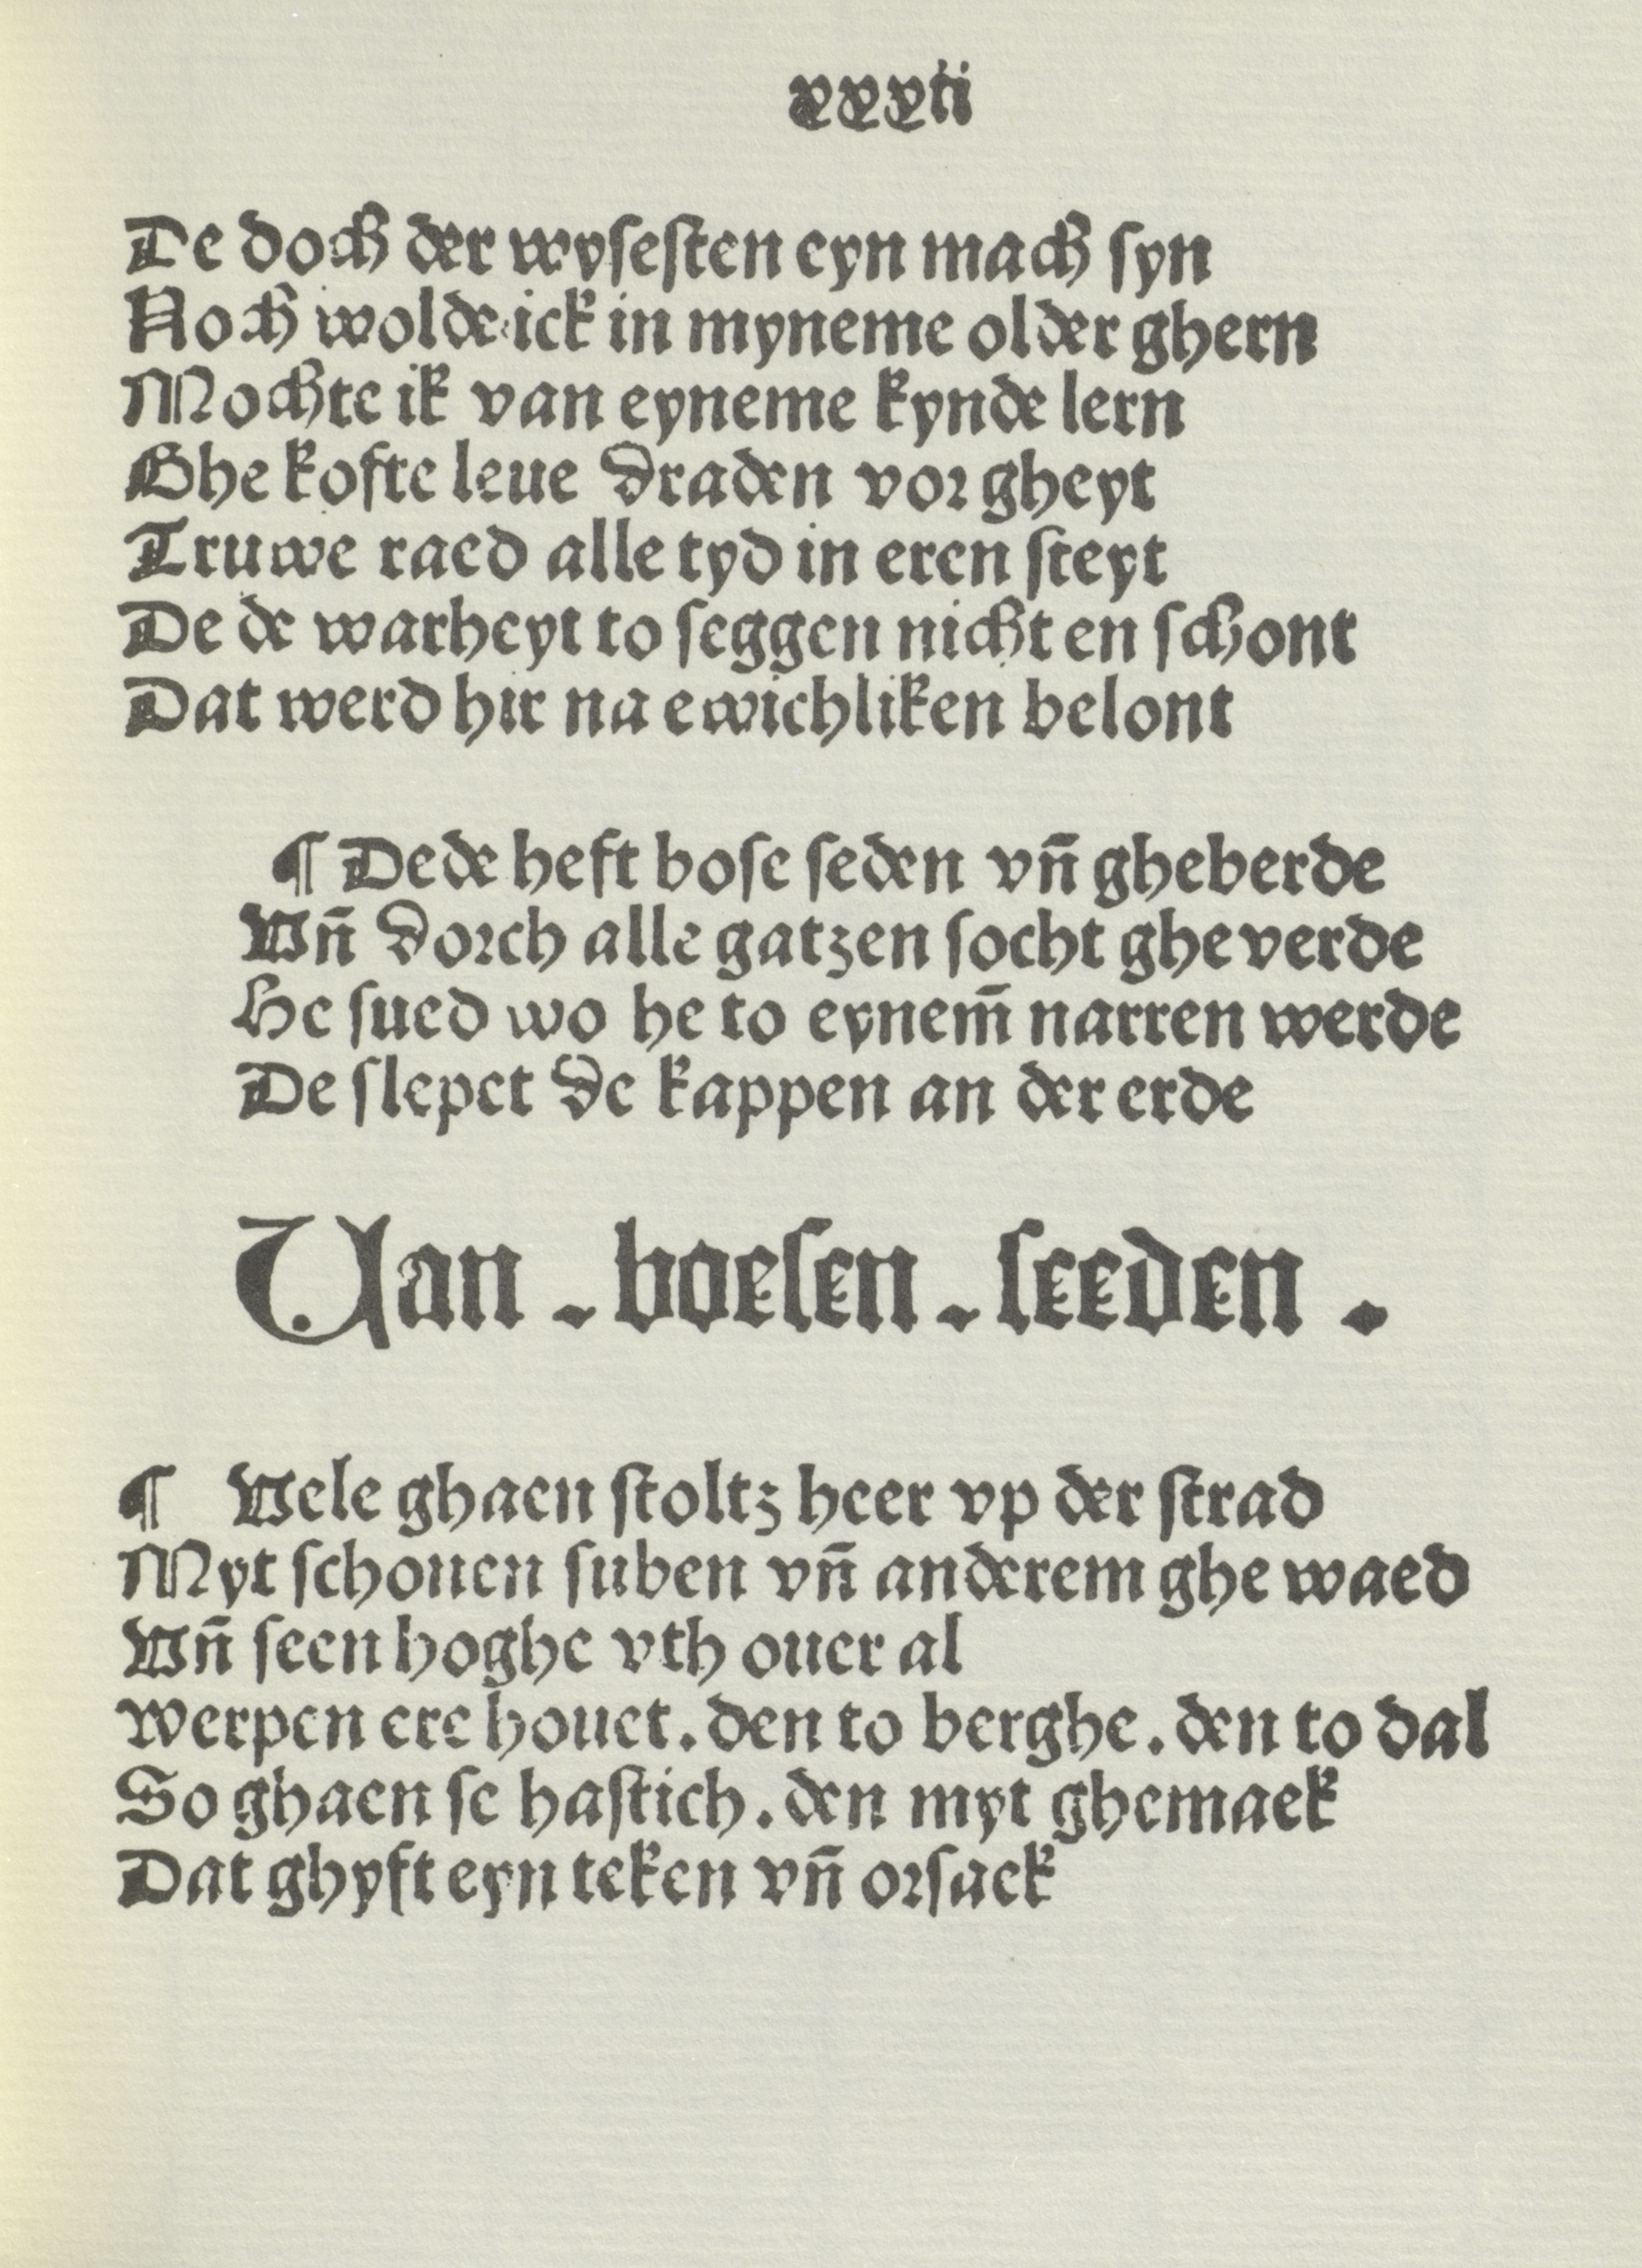 xxxii
De doch der wyſeſten eyn mach ſyn
Noch wolde ick in myneme older ghern
Mochte ik van eyneme kynde lern
Ghe kofte leue draden vor gheyt
Truwe raed alle tyd in eren ſteyt
De de warheyt to ſeggen nicht en ſchont
Dat werd hir na ewichliken belont
¶ Dede heft boſe ſeden vn̄ gheberde
Vn̄ dorch alle gatzen ſocht ghe verde
He ſued wo he to eynem̄ narren werde
De ſlepet de kappen an der erde
Uan . boeſen . ſeeden .
¶ Vele ghaen ſtoltz heer vp der ſtrad
Myt ſchouen ſuben vn̄ anderem ghe waed
Vn̄ ſeen hoghe vth ouer al
werpen ere houet. den to berghe. den to dal
So ghaen ſe haſtich. den myt ghemaek
Dat ghyft eyn teken vn̄ orſaek